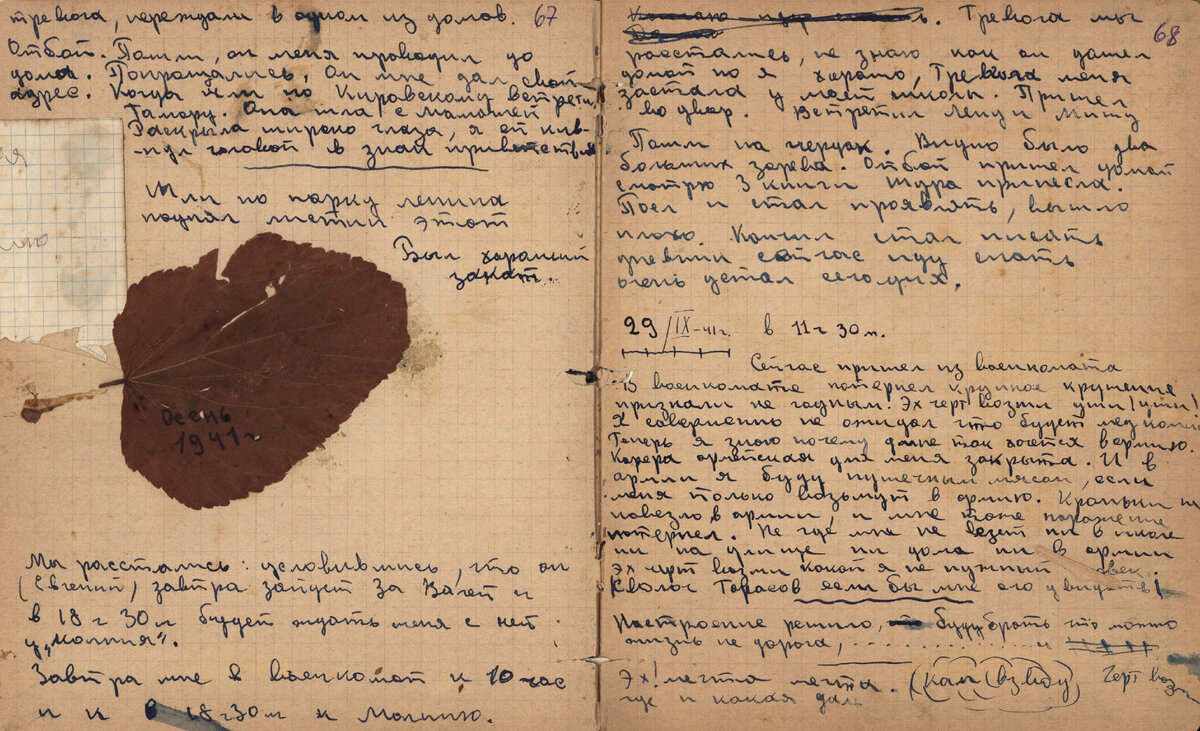 тревога, переждали в одном из домов. 67
Отбой. Пошли, он меня проводил до
дома. Попрощались, Он мне дал свой
адрес. Когда шли по Кировскому встрети
Тамару. Она шла с мамашей
Раскрыла широко глаза, я ей кив-
-нул головой в знак приветствия
Шли по парку ленина
поднял листик этот
Был хороший
закат.
Осень
1941 г
Мы расстались: условившись, что он
(Евгений) завтра зайдет за Вагет и
в 18 г 30 м будет ждать меня с ней
у "молния".
Завтра мне в военкомат к 10 час
и к 18 г 30 м к Молнию.
68
Тревога мы
расстались, не знаю как он дошел
домой но я хорошо, Тревога меня
застала у моей школы. Пришел
во двор. Встретил Леню и Мишу
Пошли на чердак. Видно было два
больших зарева. Отбой пришел домой
смотрю 3 книги Шура принесла.
Поел и стал проявлять, вышло
плохо. Кончил стал писать
дневник сейчас иду спать
очень устал сегодня.
29/IX-41 г. в 11 г 30 м.
Сейчас пришел из военкомата
В военкомате потерпел крупное крушение
признали не годным. Эх черт возьми уши! уши!
Я совершенно не ожидал что будет мед
Теперь я знаю почему даже так хочется в армию.
Карера армейская для меня закрыта. И в
армии я буду пушечным мясом, если
меня только возьмут в армию.
повезло в армии, и мне тоже поражение
потерпел. Не где мне не везет ни в школе
ни на улице ни дома ни в армии
Эх черт возьми какой я не нужный век.
Сволоч Тарасов если бы мне его увидеть!
Настроение решило, буду брать что можно
жизнь не дорога, .............. и
Эх! мечта мечта. (кам взводу) Черт воз
где и какая даль